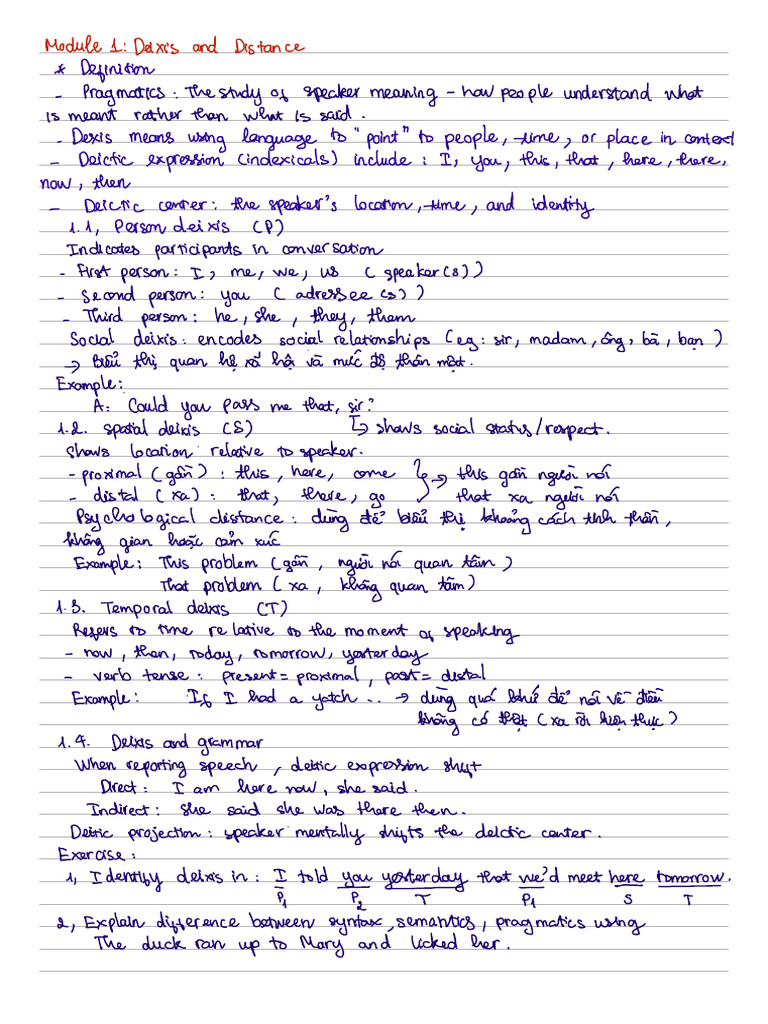 Module 1: Deixis and Distance
* Definition
- Pragmatics: The study of speaker meaning - how people understand what
is meant rather than what is said.
- Dexis means using language to "point" to people, time, or place in context
- Deictic expression (indexicals) include: I, you, this, that, here, there,
now, then
- Deictic center: the speaker's location, time, and identity
1.1, Person deixis (P)
Indicates participants in conversation
- First person: I, me, we, us (speaker(s))
- Second person: you (adressee(s))
- Third person: he, she, they, them
Social deixis: encodes social relationships (eg: sir, madam, ông, bà, bạn)
→ Biểu thị quan hệ xã hội và mức độ thân mật.
Example:
A: Could you pass me that, sir?
1.2. spatial deixis (S) ↳ shows social status/respect.
Shows location relative to speaker.
- proximal (gần): this, here, come → this gần người nói
- distal (xa): that, there, go that xa người nói
Psychological distance: dùng để biểu thị khoảng cách tinh thần,
không gian hoặc cảm xúc
Example: This problem (gần, người nói quan tâm)
That problem (xa, không quan tâm)
1.3. Temporal deixis (T)
Refers to time relative to the moment of speaking
- now, then, today, tomorrow, yesterday
- verb tense: present = proximal, past = distal
Example: If I had a yatch .. → dùng quá khứ để nói về điều
không có thật (xa rời hiện thực)
1.4. Deixis and grammar
When reporting speech, deitic expression shift
Direct: I am here now, she said.
Indirect: She said she was there then.
Deitic projection: speaker mentally shifts the deictic center.
Exercise:
1, Identify deixis in: I told you yesterday that we'd meet here tomorrow.
P1 P2 T P1 S T
2, Explain difference between syntax, semantics, pragmatics using
The duck ran up to Mary and licked her.